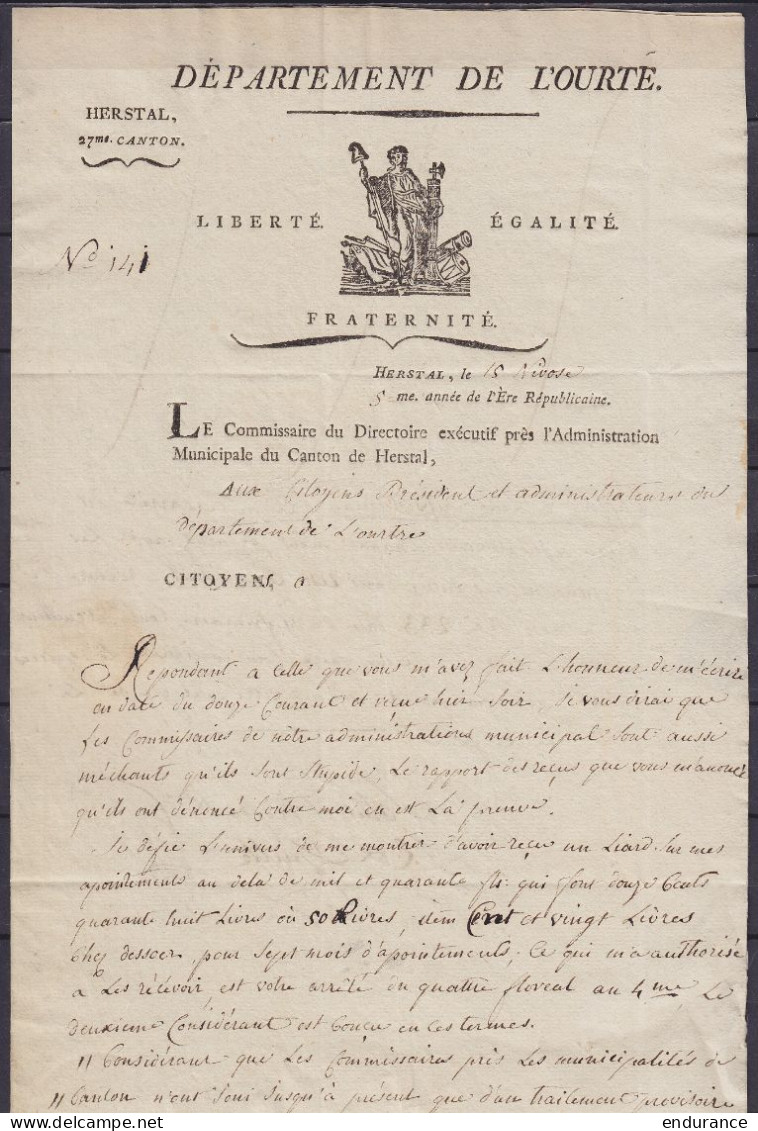 DÉPARTEMENT DE L'OURTE.
HERSTAL,
27me. CANTON.
LIBERTÉ. ÉGALITÉ.
Nº 141
FRATERNITÉ.
HERSTAL, le 15 Nivose
5 me. année de l'Ère Républicaine.
LE Commissaire du Directoire exécutif près l'Administration
Municipale du Canton de Herstal,
Aux Citoyens Président et administrateurs du
Département de L'ourtre
CITOYENS
Repondant a celle que vous m'avez fait L'honneur de m'écrire
en date du douze Courant et reçue hier Soir, Je vous dirai que
Les Commissaires de nôtre administrations municipal Sont aussi
méchants qu'ils Sont Stupide, Le rapport des reçus que vous m'anoncé
qu'ils ont dénoncé Contre moi en est La preuve.
Je défie L'univers de me montrer d'avoir reçu un Liard Sur mes
apointements au dela de mil et quarante fls. qui fons douze Cents
quarante huit Livres où 50 Livres, item Cent et vingt Livres
Chez dessoer, pour Sept mois d'apointements, Ce qui m'a authorisé
a Les récévoir est votre arrêté du quattre floreal an 4me Le
deuxieme Considérant est Conçu en ces termes.
" Considérant que Les Commissaires près Les municipalités de
" Canton n'ont Joui Jusqu'à présent que d'un traitement provisoire
endurance